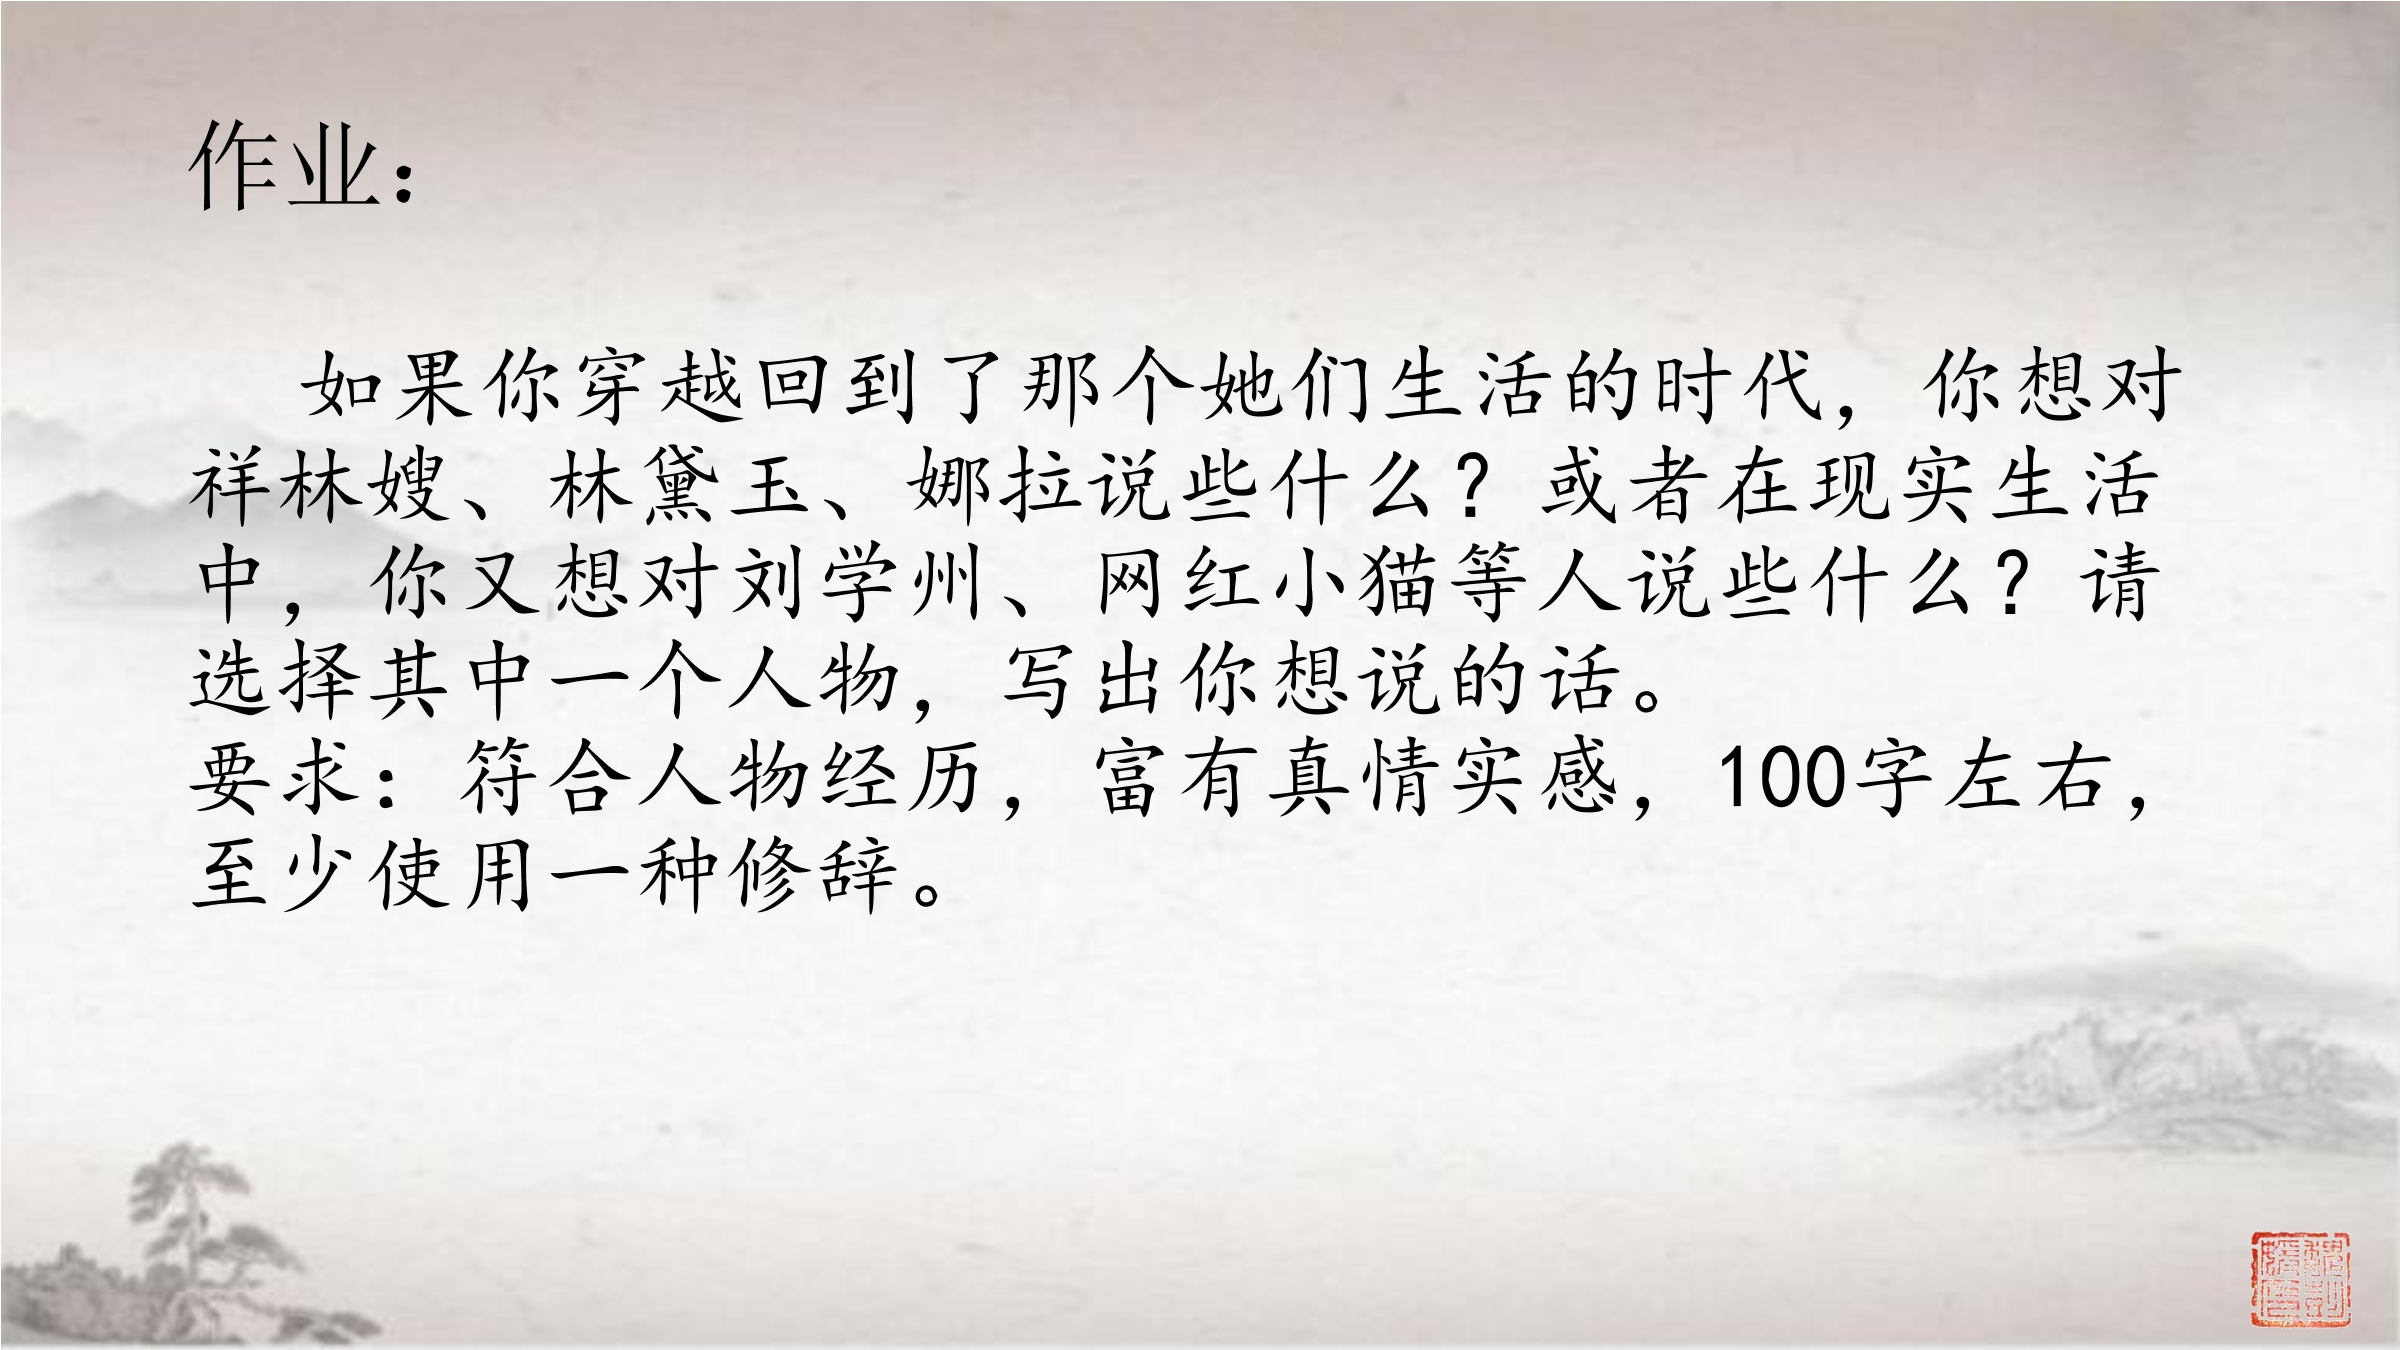 作业：
如果你穿越回到了那个她们生活的时代，你想对
祥林嫂、林黛玉、娜拉说些什么？或者在现实生活
中，你又想对刘学州、网红小猫等人说些什么？请
选择其中一个人物，写出你想说的话。
要求：符合人物经历，富有真情实感，100字左右，
至少使用一种修辞。